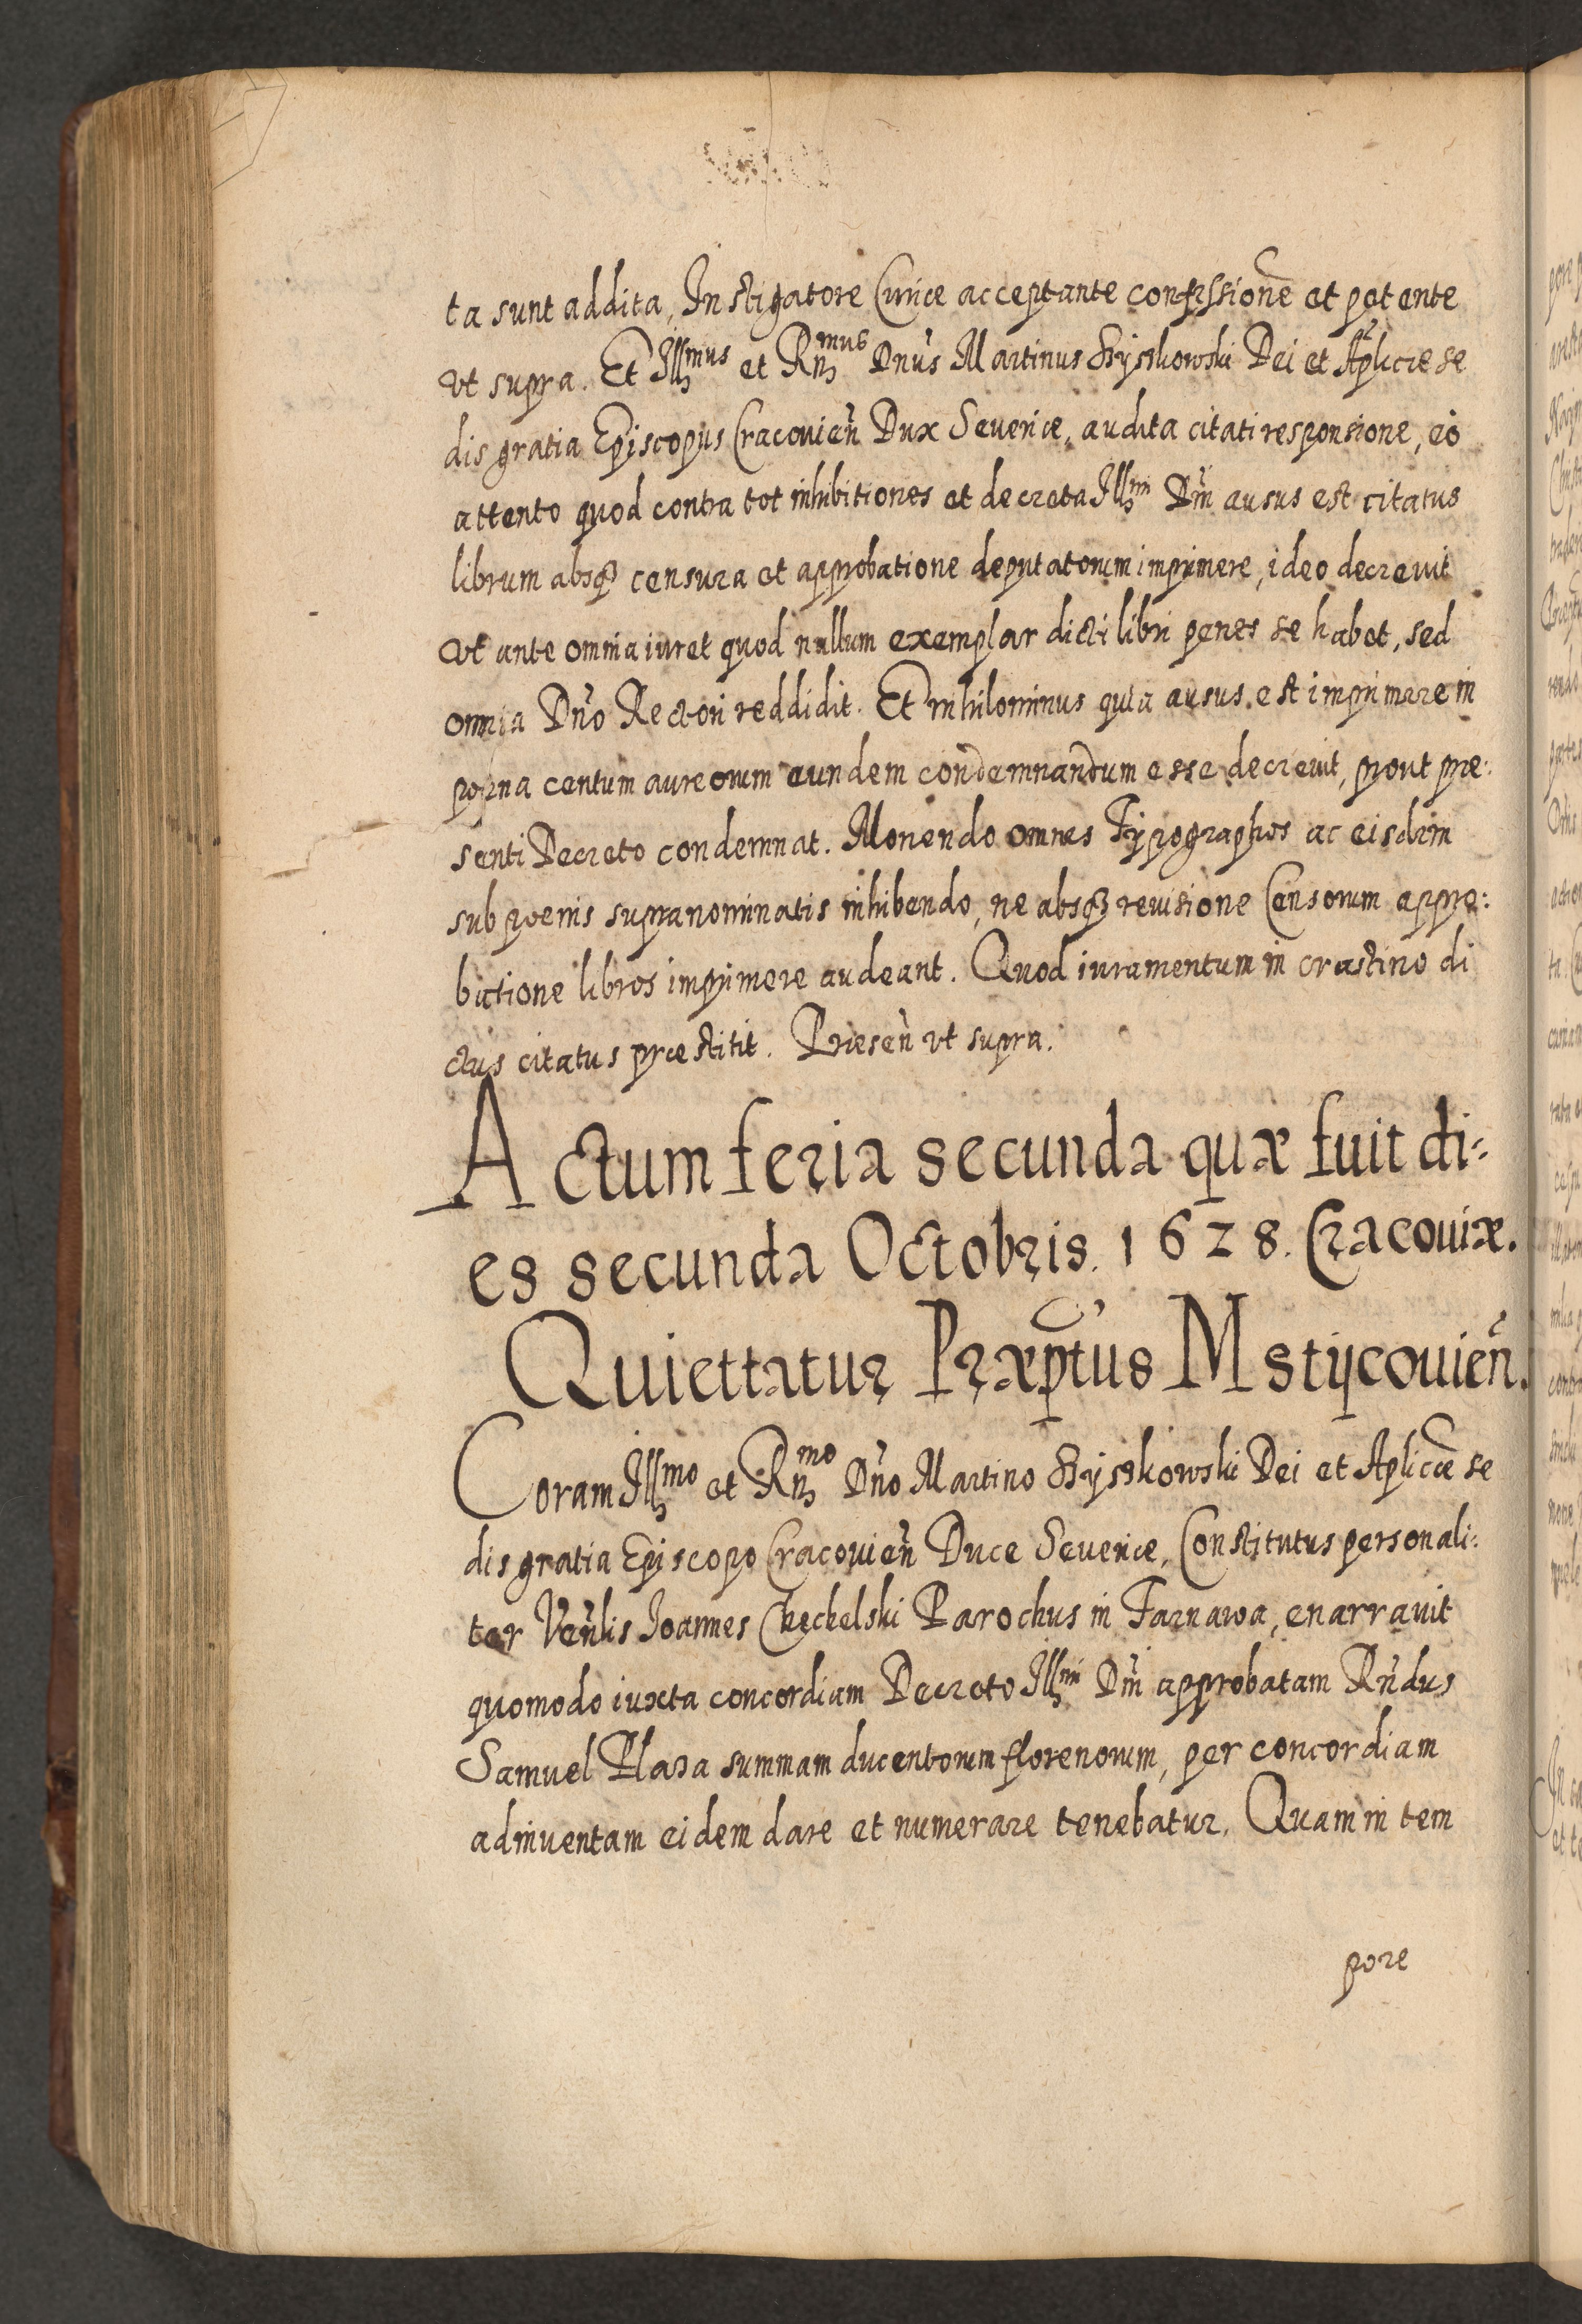 ta sunt addita, Instigatore Curiæ acceptante confessionẽ et petente
vt supra. Et Illmus et Rmus Dnus Martinus Szyszkowski Dei et Aplicæ se
dis gratia Episcopus Cracovien̄ Dux Severiæ, audita citati responsione, eo
attento quod contra tot inhibitiones et decreta Illmi Dni ausus est citatus
librum absq₃ censura et approbatione deputatorum imprimere, ideo decrevit
vt ante omnia iuret quod nullum exemplar dicti libri penes se habet, sed
omnia Dno Rectori reddidit. Et nihilominus quia ausus est imprimere in
pœna centum aureorum eundem condemnandum esse decrevit, prout præ:
senti Decreto condemnat. Monendo omnes Typographos ac eisdem
sub pœnis supranominatis inhibendo, ne absq₃ revisione Censorum appro:
batione libros imprimere audeant. Quod iuramentum in crastino di
ctus citatus præstitit. Præsen̄ vt supra.
Actum feria secunda quæ fuit di-
es secunda Octobris. 1628. Cracouiæ.
Quiettatur Præptus Mstycouien̄.
Coram Illmo et Rmo Dno Martino Szyszkowski Dei et Aplicæ se
dis gratia Episcopo Cracouien̄ Duce Seueriæ, Constitutus personali:
ter Venlis Ioannes Chechelski Parochus in Tarnawa, enarrauit
quomodo iuxta concordiam Decreto Illmi Dni approbatam Rndus
Samuel Plaza summam ducentorum florenorum, per concordiam
adinuentam eidem dare et numerare tenebatur. Quam in tem
pore